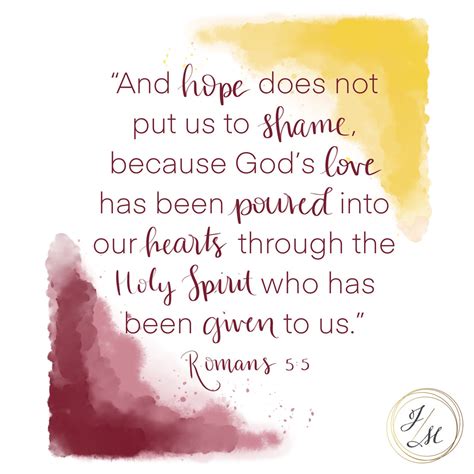 “And hope does not
put us to shame,
because God’s love
has been poured into
our hearts through the
Holy Spirit who has
been given to us.”
Romans 5:5
JM